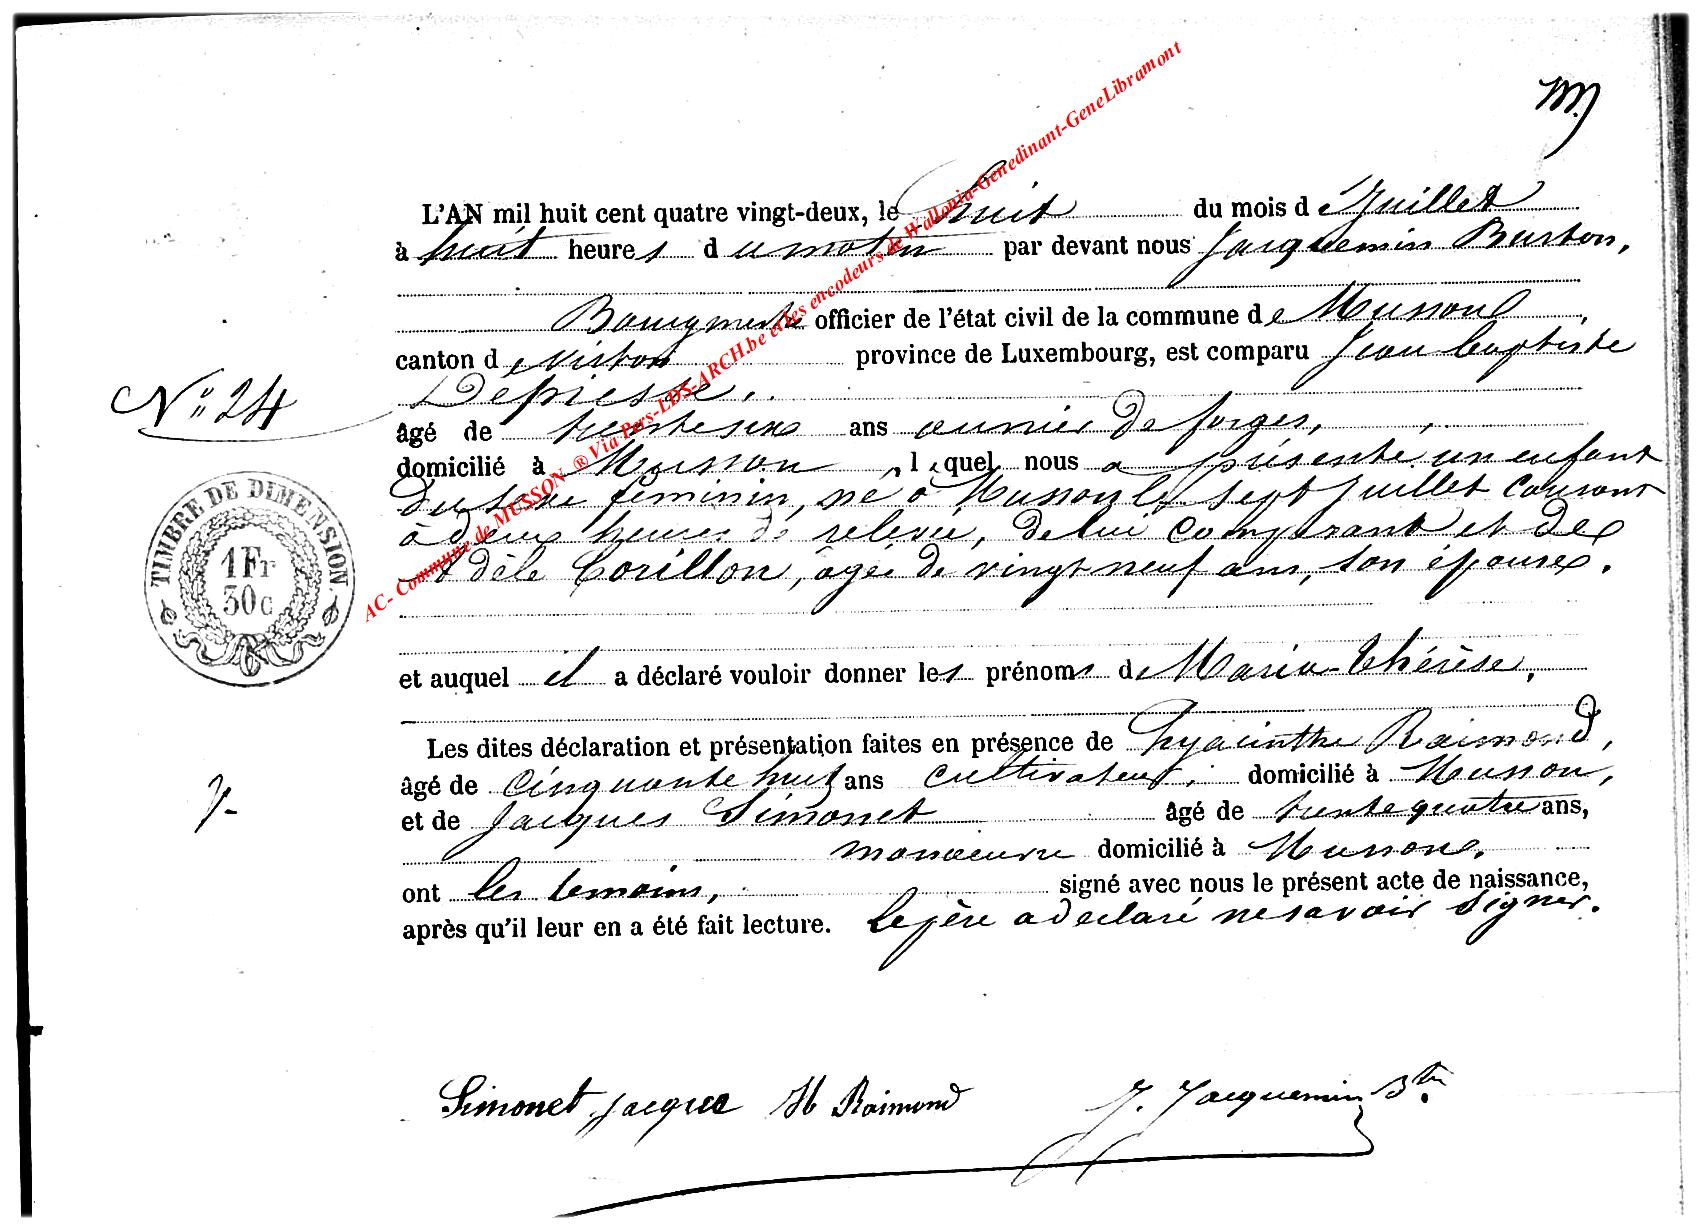 L'AN mil huit cent quatre vingt-deux, le huit du mois de Juillet
à huit heures du matin par devant nous Jacquemin Barton,
Bourgmestre officier de l'état civil de la commune de Musson
canton de Virton province de Luxembourg, est comparu Jean Baptiste
Depiesse,
N° 24
âgé de trente six ans ouvrier de forges,
domicilié à Musson, lequel nous a présenté un enfant
du sexe féminin, né à Musson le sept Juillet courant
à deux heures de relevée, de lui comparant et de
Adèle Corillon, âgée de vingt neuf ans, son épouse.
TIMBRE DE DIMENSION
1 Fr
30c
et auquel il a déclaré vouloir donner les prénoms de Maria-Thérèse,
Les dites déclaration et présentation faites en présence de Hyacinthe Raimond,
âgé de cinquante huit ans cultivateur, domicilié à Musson,
et de Jacques Simonet âgé de trente quatre ans,
manoeuvre domicilié à Musson.
ont les temoins, signé avec nous le présent acte de naissance,
après qu'il leur en a été fait lecture. Le père a declaré ne savoir signer.
Simonet Jacque H Raimond J. Jacquemin Btn.
AC- Commune de MUSSON ® Via Pers-LDS-ARCH.be et les encodeurs de Wallonia-Genedinant-GeneLibramont